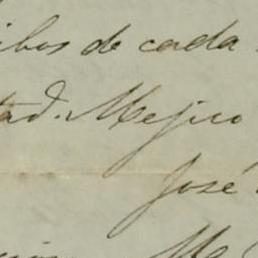 ibos de cada
tad. Mejico
José